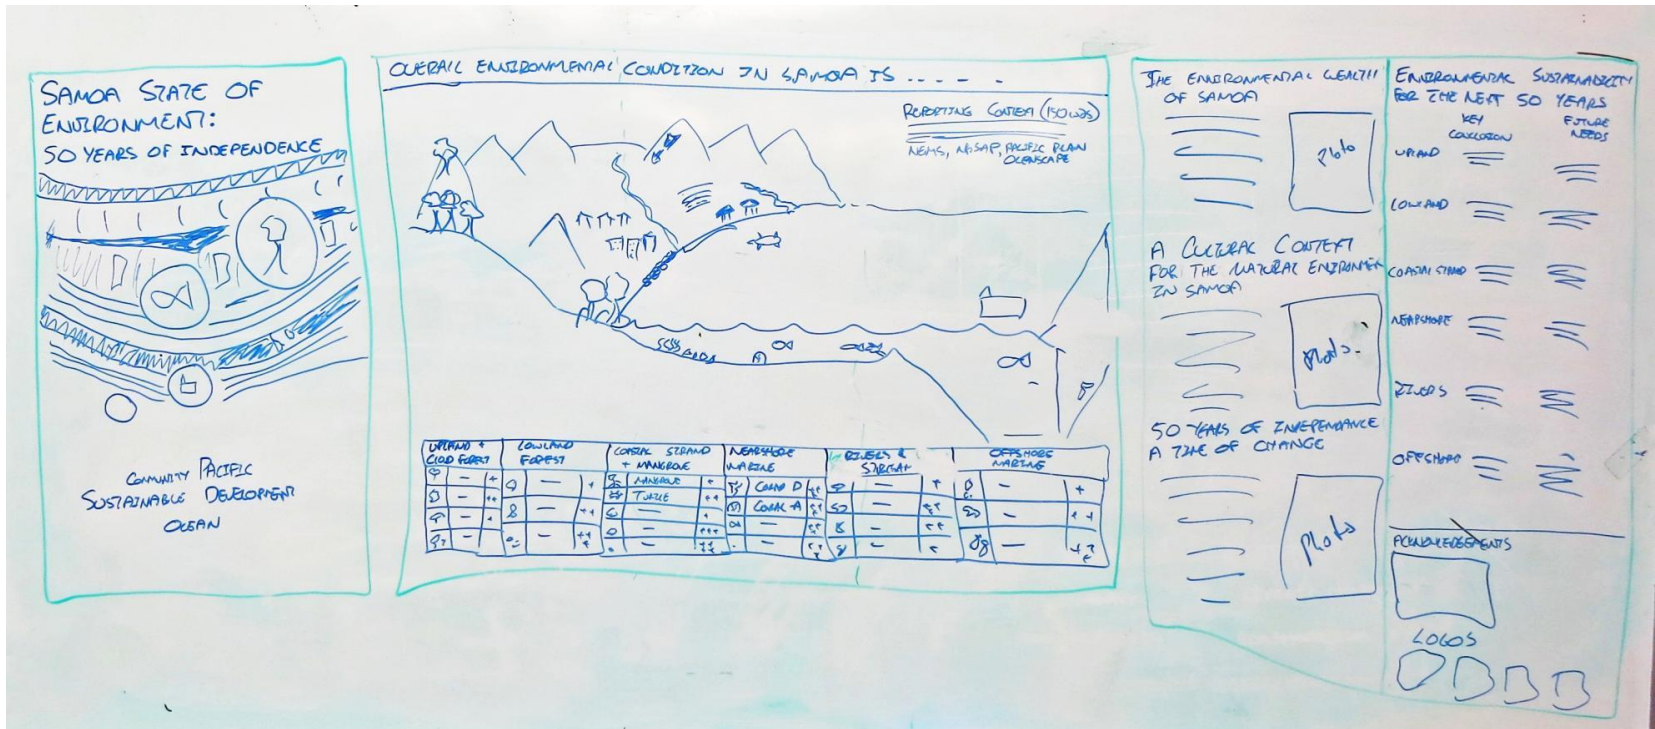 SAMOA STATE OF
ENVIRONMENT:
50 YEARS OF INDEPENDENCE
COMMUNITY PACIFIC
SUSTAINABLE DEVELOPMENT
OCEAN
OVERALL ENVIRONMENTAL CONDITION IN SAMOA IS .....
REPORTING CONTEXT (150 WDS)
NEMS, NBSAP, PACIFIC PLAN
OCEANSCAPE
UPLAND +
CLOUD FOREST
LOWLAND
FOREST
COASTAL STRAND
+ MANGROVE
NEARSHORE
MARINE
RIVERS &
STREAM
OFFSHORE
MARINE
MANGROVE
TURTLE
CORAL D
CORAL A
THE ENVIRONMENTAL WEALTH
OF SAMOA
photo
A CULTURAL CONTEXT
FOR THE NATURAL ENVIRONMEN
IN SAMOA
photo.
50 YEARS OF INDEPENDANCE
A TIME OF CHANGE
photo
ENVIRONMENTAL SUSTAINABILITY
FOR THE NEXT 50 YEARS
KEY
CONCLUSION
FUTURE
NEEDS
UPLAND
LOWLAND
COASTAL STRAND
NEARSHORE
RIVERS
OFFSHORE
ACKNOWLEDGEMENTS
LOGOS